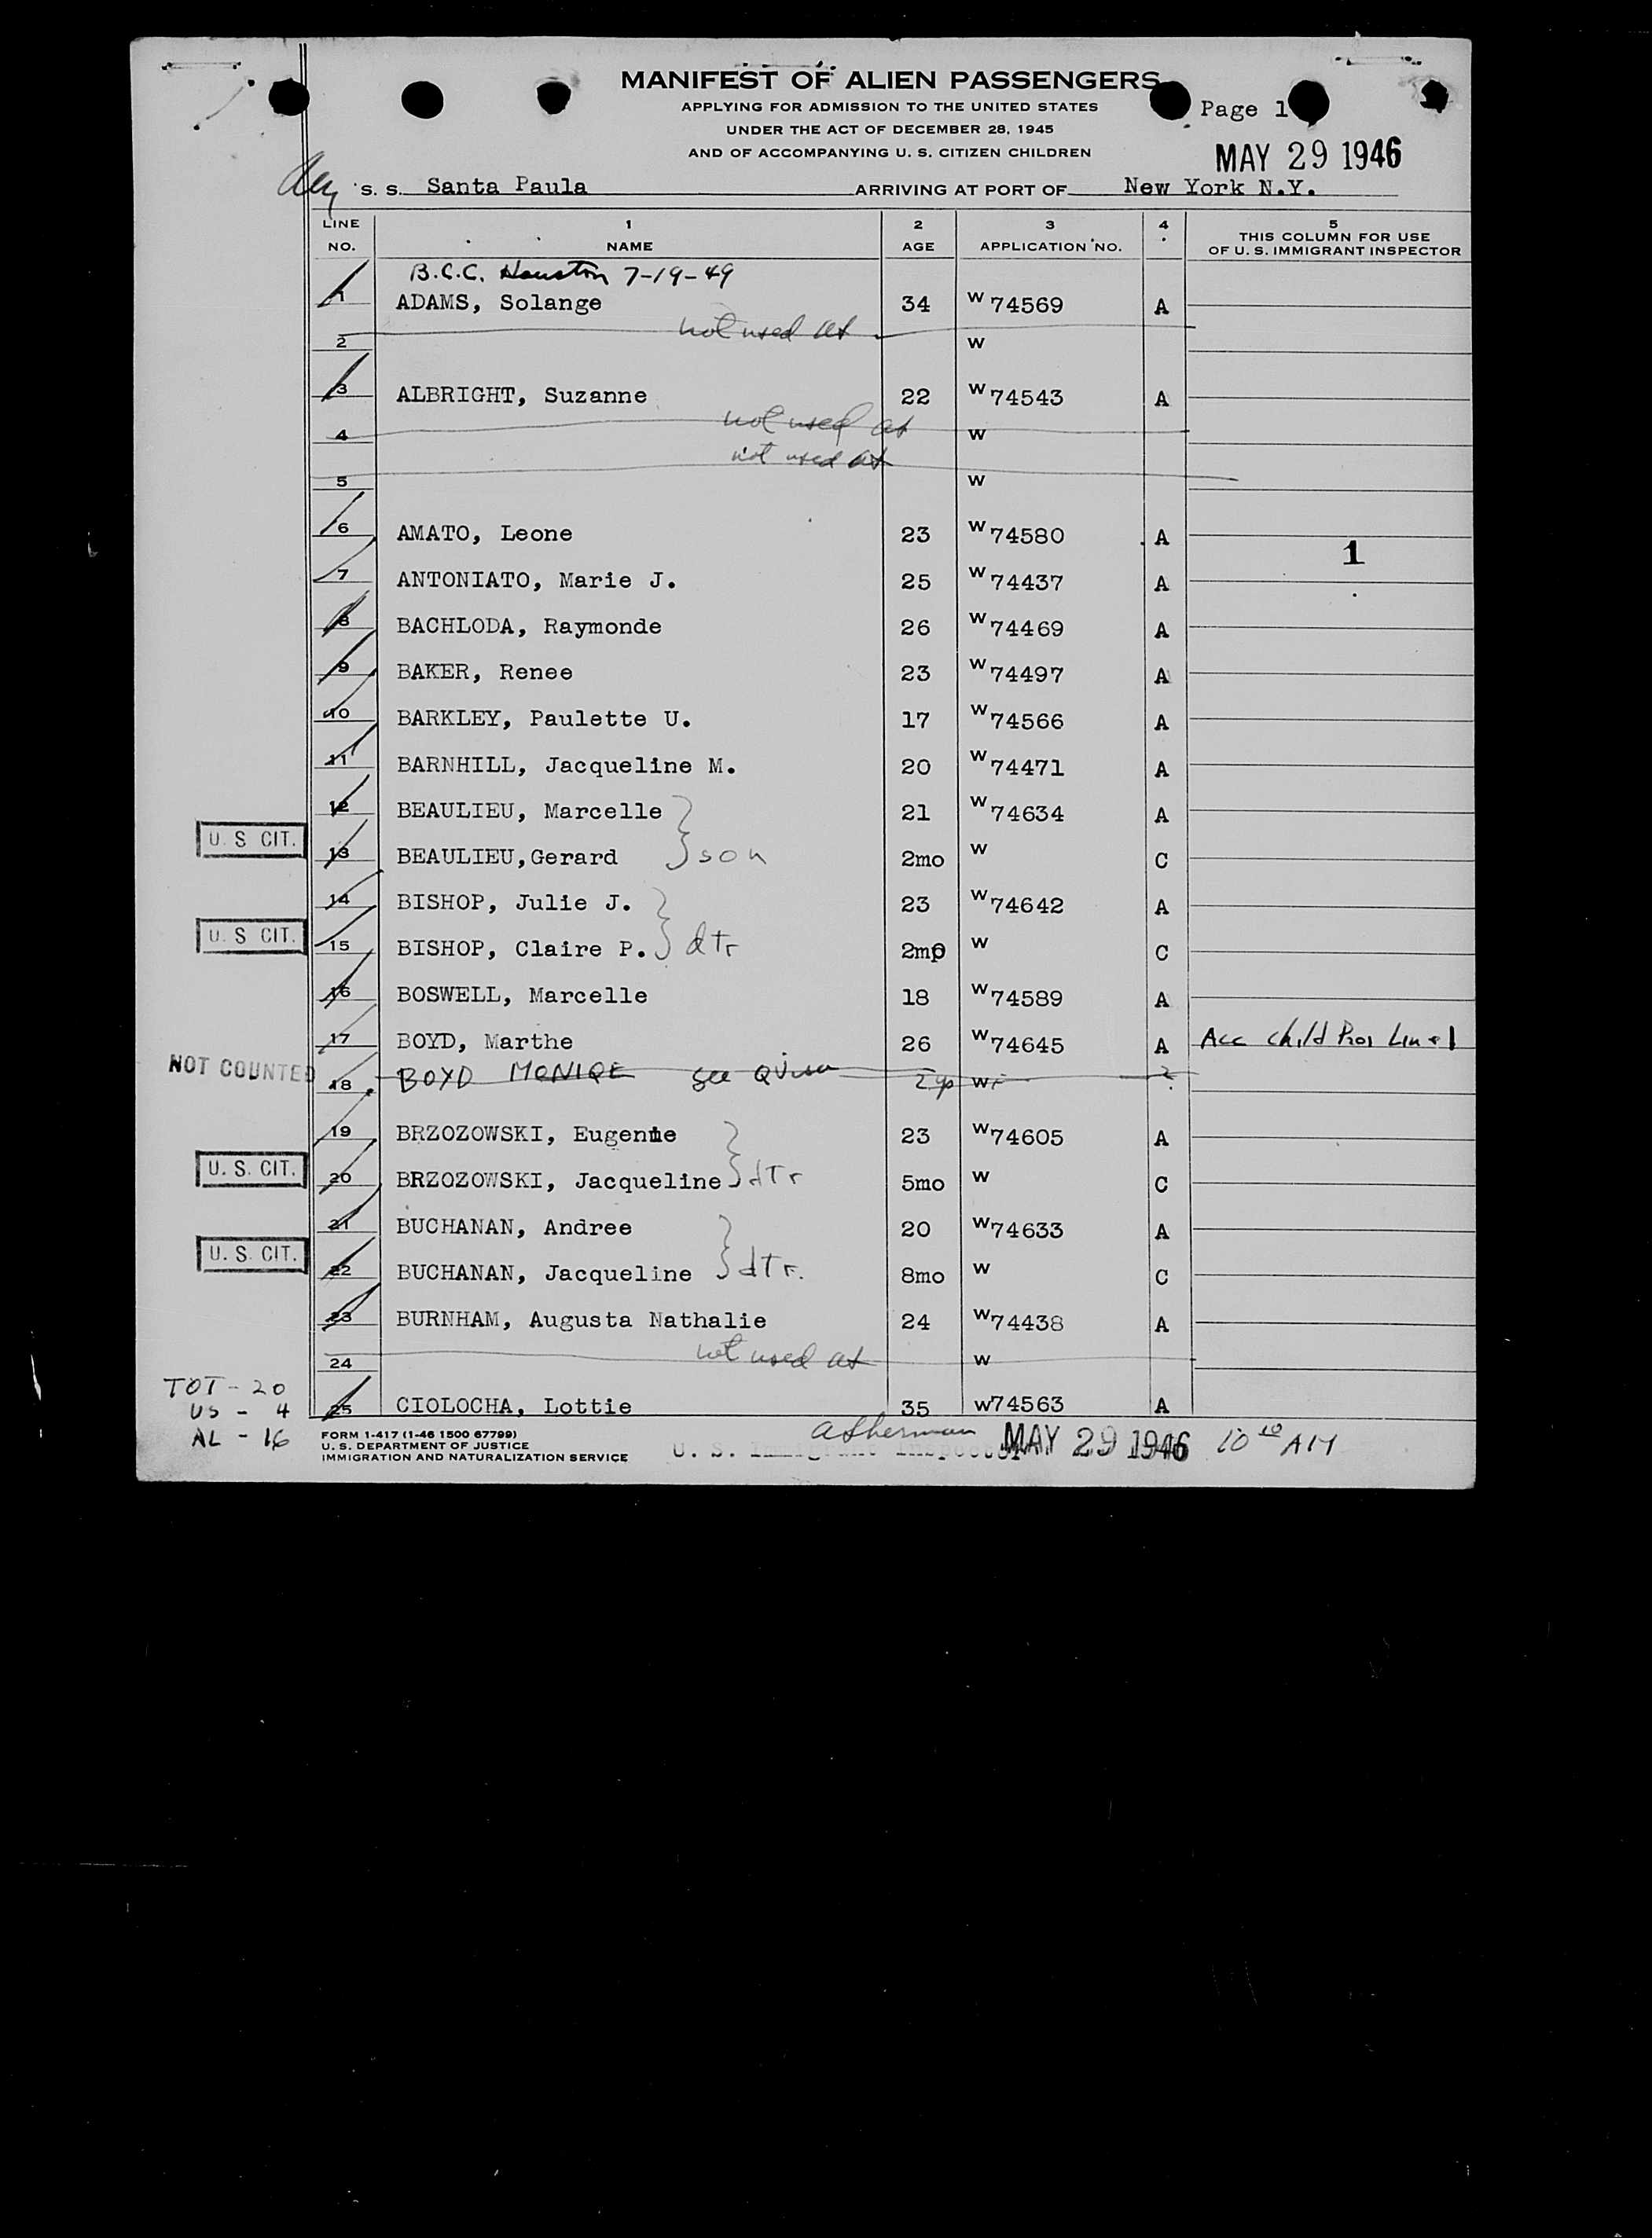 MANIFEST OF ALIEN PASSENGERS
APPLYING FOR ADMISSION TO THE UNITED STATES
Page 1
UNDER THE ACT OF DECEMBER 28, 1945
AND OF ACCOMPANYING U. S. CITIZEN CHILDREN
MAY 29 1946
S. S. Santa Paula ARRIVING AT PORT OF New York N.Y.
LINE NO. 1 NAME 2 AGE 3 APPLICATION NO. 4 5 THIS COLUMN FOR USE OF U. S. IMMIGRANT INSPECTOR
B.C.C. Houston 7-19-49
1 ADAMS, Solange 34 W 74569 A
not used
2 W
3 ALBRIGHT, Suzanne 22 W 74543 A
not used
4 W
not used
5 W
6 AMATO, Leone 23 W 74580 A
1
7 ANTONIATO, Marie J. 25 W 74437 A
8 BACHLODA, Raymonde 26 W 74469 A
9 BAKER, Renee 23 W 74497 A
10 BARKLEY, Paulette U. 17 W 74566 A
11 BARNHILL, Jacqueline M. 20 W 74471 A
12 BEAULIEU, Marcelle 21 W 74634 A
U. S CIT. 13 BEAULIEU,Gerard son 2mo W C
14 BISHOP, Julie J. 23 W 74642 A
U. S CIT. 15 BISHOP, Claire P. dtr 2mo W C
16 BOSWELL, Marcelle 18 W 74589 A
17 BOYD, Marthe 26 W 74645 A Acc child
NOT COUNTED 18 BOYD MONIQE see W
19 BRZOZOWSKI, Eugenie 23 W 74605 A
U. S. CIT. 20 BRZOZOWSKI, Jacqueline dTr 5mo W C
21 BUCHANAN, Andree 20 W 74633 A
U. S. CIT. 22 BUCHANAN, Jacqueline dTr. 8mo W C
23 BURNHAM, Augusta Nathalie 24 W 74438 A
not used
24 W
25 CIOLOCHA, Lottie 35 W74563 A
TOT - 20
US - 4
AL - 16
FORM 1-417 (1-46 1500 67799)
U. S. DEPARTMENT OF JUSTICE
IMMIGRATION AND NATURALIZATION SERVICE
U. S. Immigrant Inspector MAY 29 1946 10 10 AM